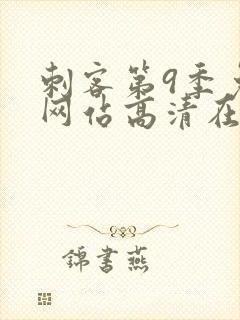 刺客第9季
网估高清在
錦書燕